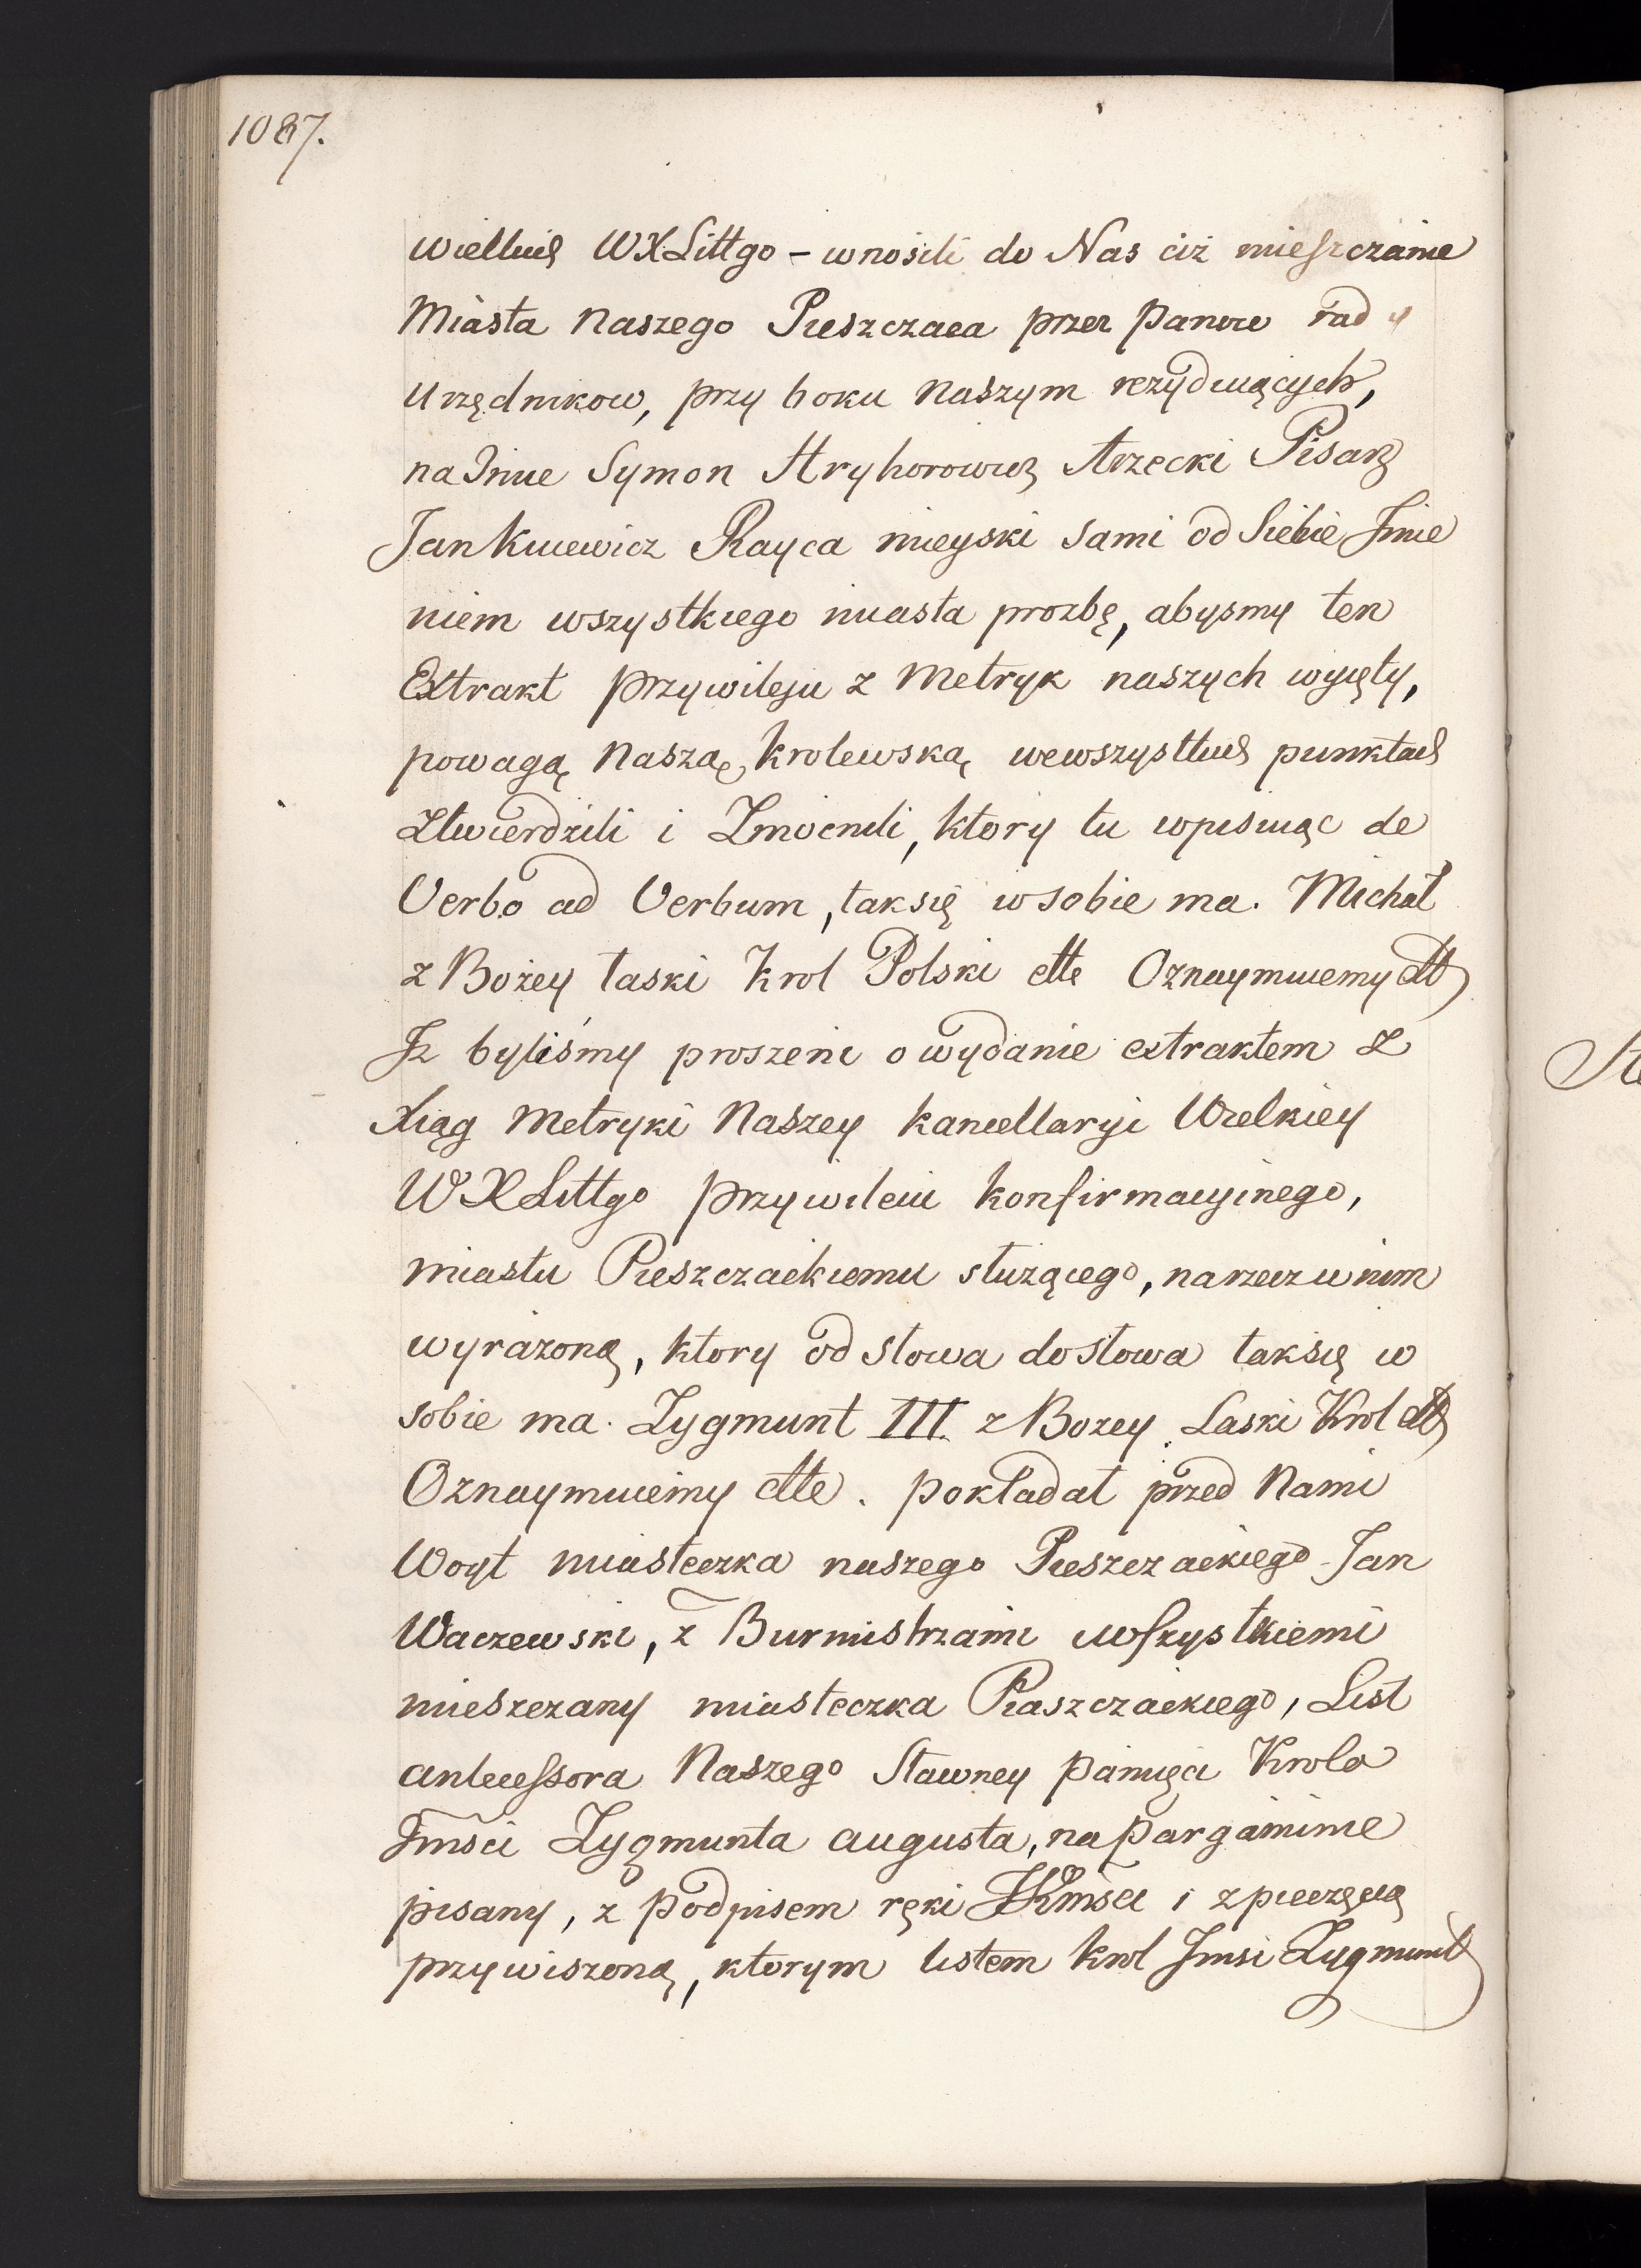 1087.
wielkich WXLittgo – wnosili do Nas ciż mieszczanie
Miasta Naszego Pieszczaca przez Panow rad y
Urzędnikow, przy boku Naszym rezyduiących,
na Imie Symon Hryhorowicz Pisarz
Jankiewicz Rayca mieyski sami od Siebie Jmie
niem wszystkiego miasta prozbę, abysmy ten
Extrakt przywileju z Metryk naszych wyięty,
powagą Naszą, krolewską, wewszystkich punktach
ztwierdzili i Zmocnili, ktory tu wpisuiąc de
Verbo ad Verbum, taksię wsobie ma. Michał
z Bożey łaski Krol Polski ette Oznaymuiemy ett
Jz byliśmy proszeni o wydanie extraktem z
Xiąg Metryki Naszey kancellaryi Wielkiey
WXLittgo przywileiu konfirmacyinego,
miastu Pieszczackiemu służącego, narzecz w nim
wyrażoną, ktory od słowa dosłowa taksię w
sobie ma. Zygmunt III z Bozey Laski Krol ett
Oznaymuiemy ette. pokładał przed Nami
Woyt miasteczka naszego Pieszczackiego Jan
Waczewski, z Burmistrzami wszystkiemi
mieszczany miasteczka Piaszczackiego, List
antecessora Naszego Sławney pamięci Krola
Jmści Zygmunta augusta, na pargaminie
pisany, z podpisem ręki JKmści i z pieczęcią
przywiszoną, ktorym listem krol Jmsi Zygmunt